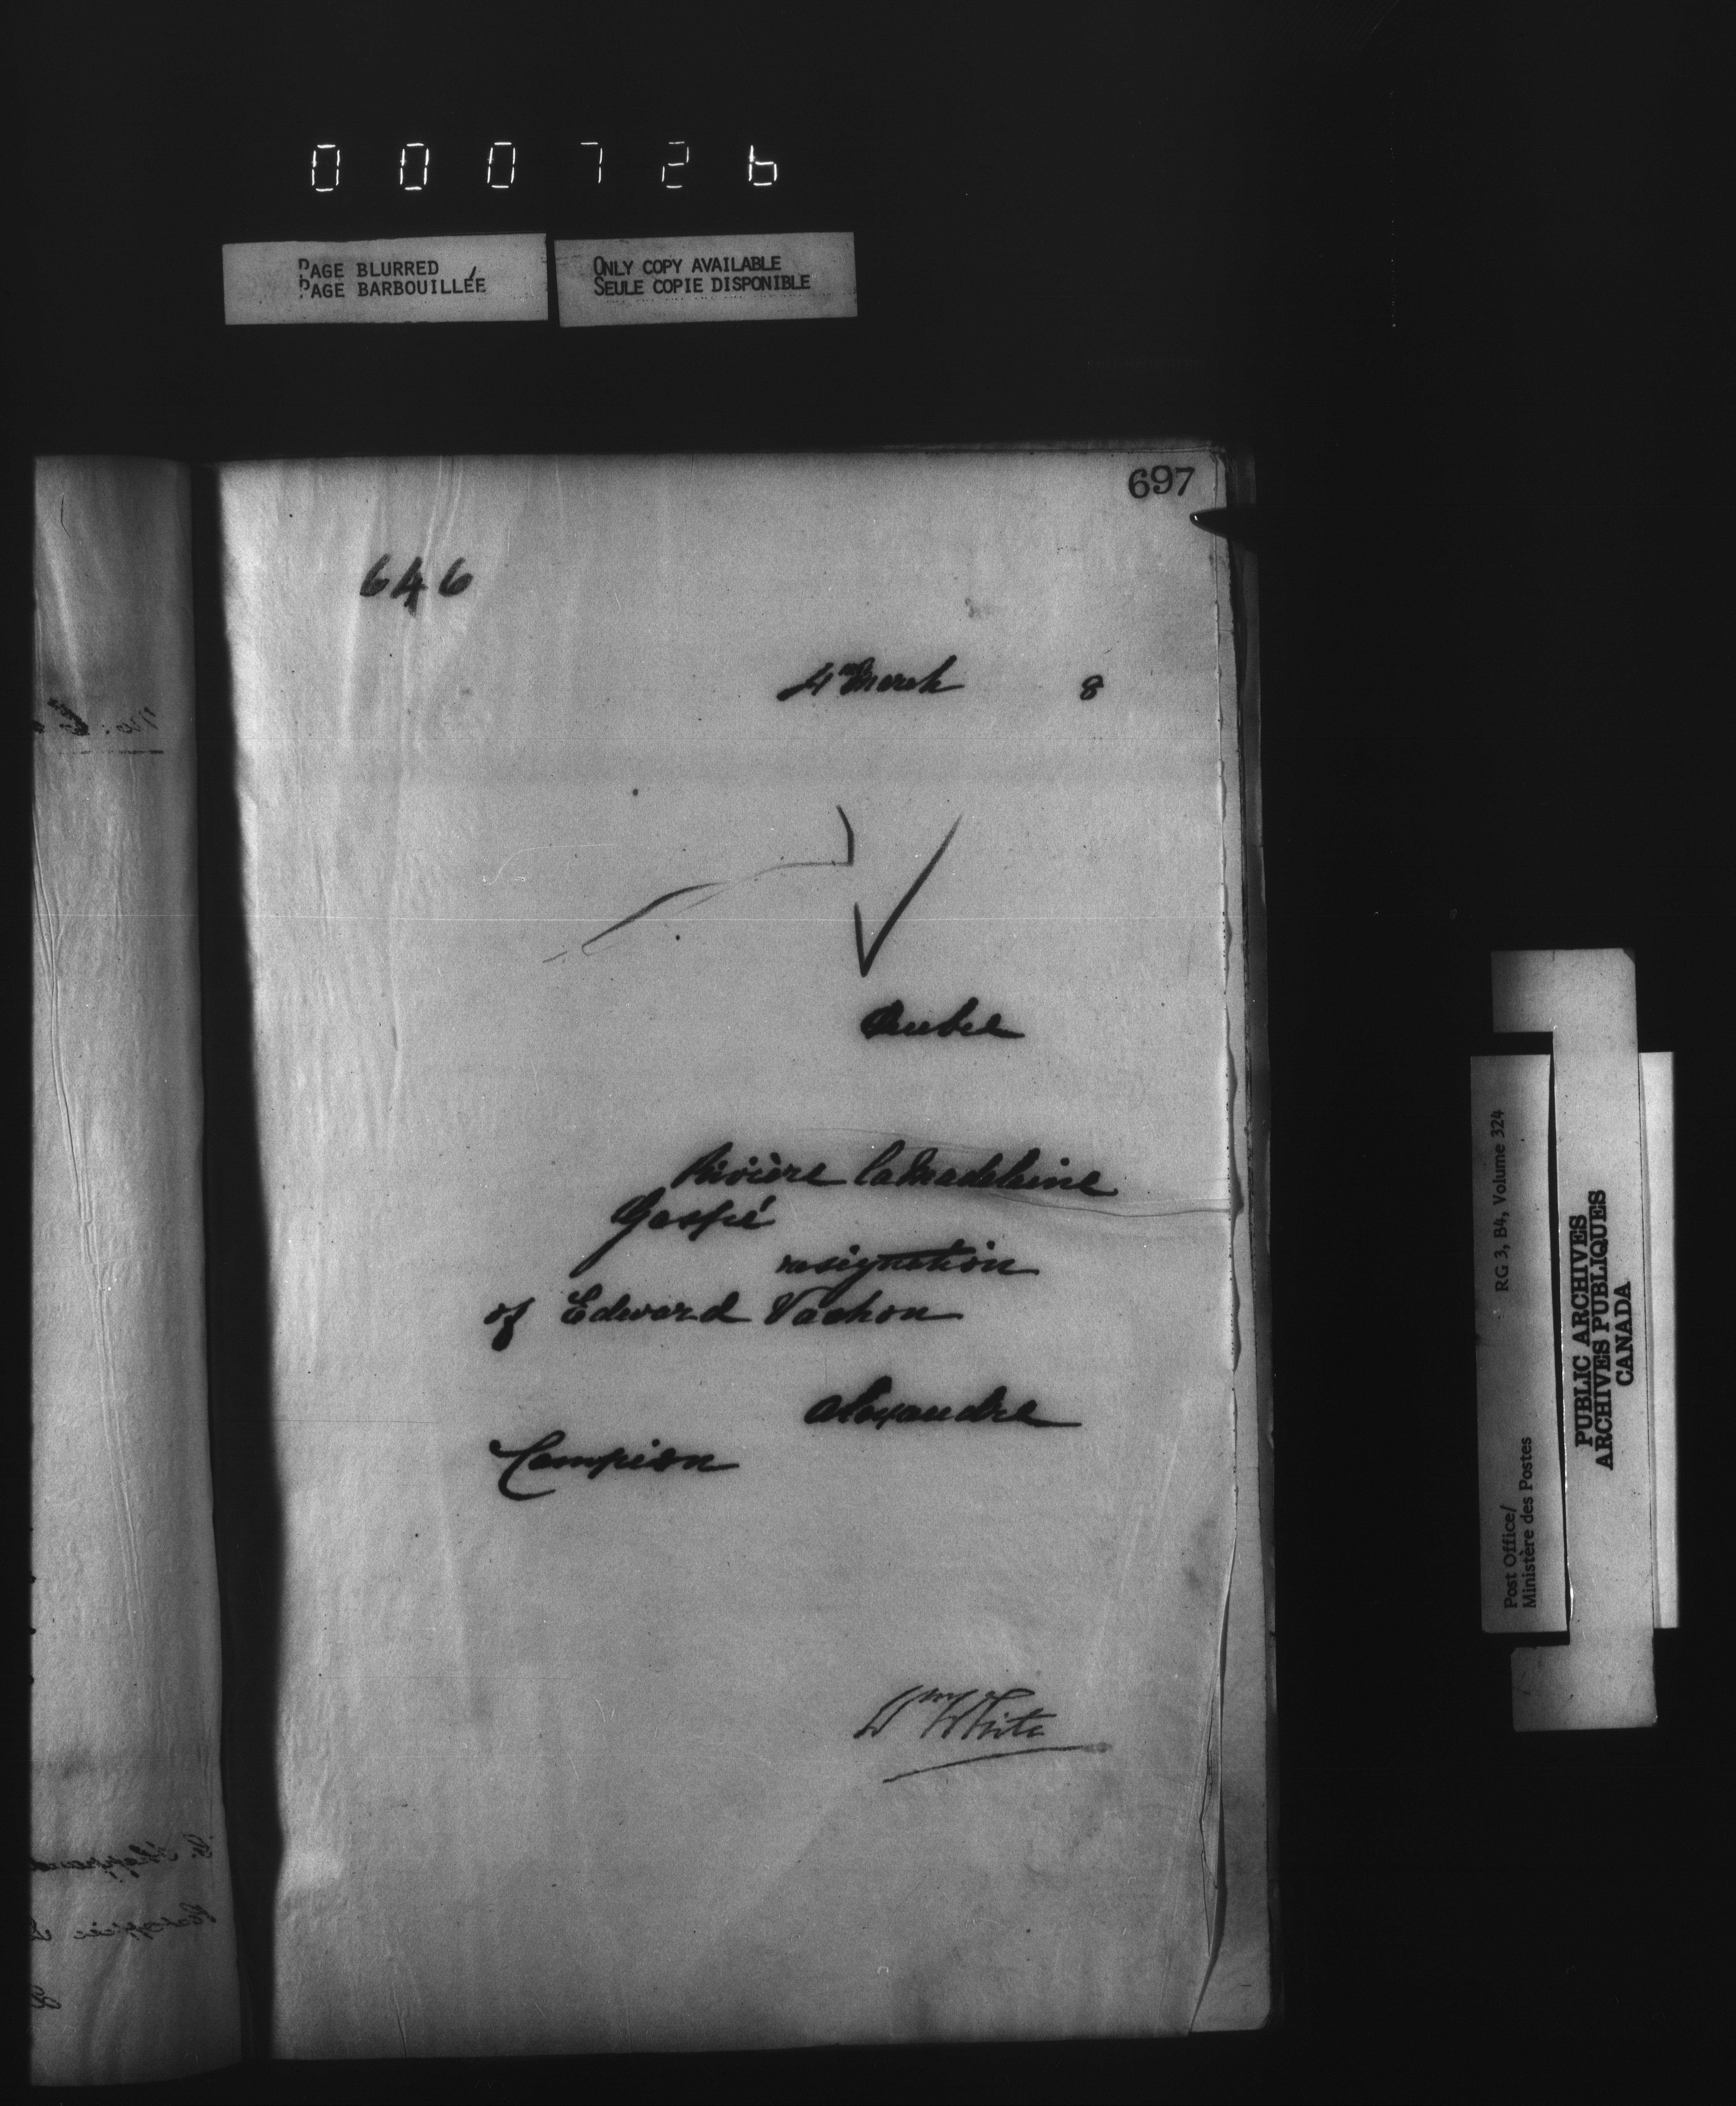 000726
PAGE BLURRED
PAGE BARBOUILLÉE
ONLY COPY AVAILABLE
SEULE COPIE DISPONIBLE
697
646
4th March 8
Quebec
Rivière laMadeleine
Gaspé
resignation
of Edward Vachon
Alexandre
Campion
Wm White
Post Office/
Ministère des Postes
RG 3, B4, Volume 324
PUBLIC ARCHIVES
ARCHIVES PUBLIQUES
CANADA